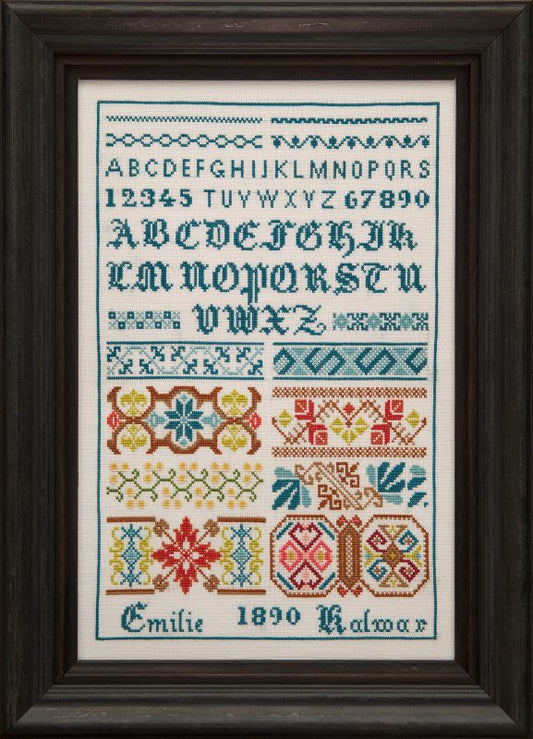 ABCDEFGHIJKLMNOPQRS
12345 TUVWXYZ 67890
ABCDEFGHIK
LMNOPQRSTU
VWXZ
Emilie 1890 Kalwar